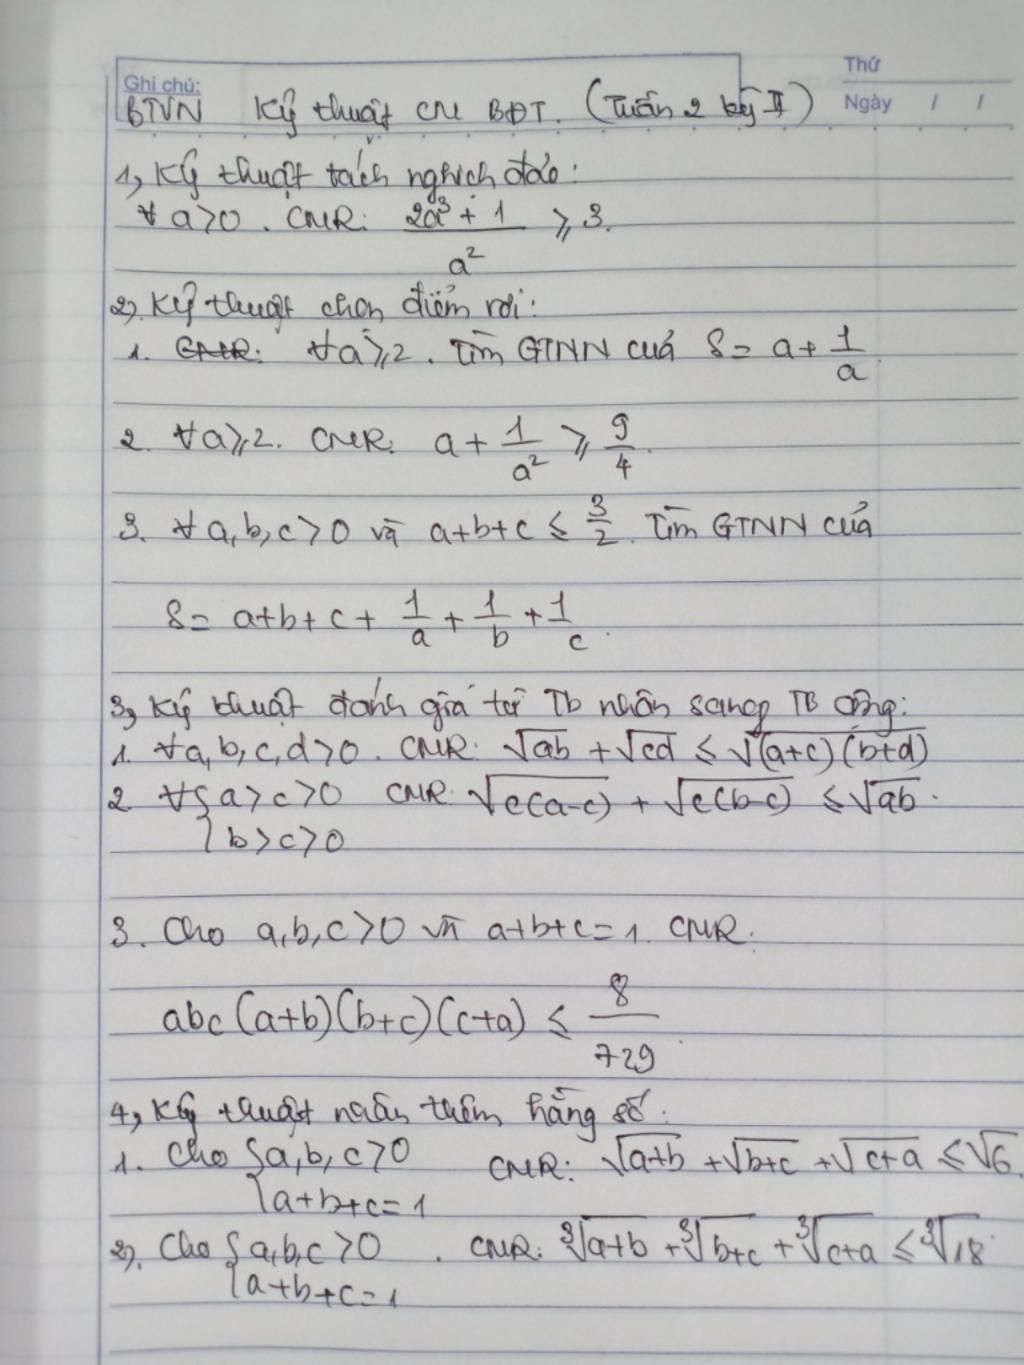 Thứ
Ghi chú:
Ngày / /
BTVN Kỹ thuật CM BĐT. (Tuần 2 kỳ II)
1, Kỹ thuật tách nghịch đảo:
∀ a>0. CMR: (2a³ + 1)/a² ⩾ 3.
2, Kỹ thuật chọn điểm rơi:
1. CMR: ∀a⩾2. Tìm GTNN của S = a + 1/a.
2. ∀a⩾2. CMR: a + 1/a² ⩾ 9/4.
3. ∀ a,b,c>0 và a+b+c ≤ 3/2. Tìm GTNN của
S = a+b+c + 1/a + 1/b + 1/c.
3, Kỹ thuật đánh giá từ Tb nhân sang TB cộng:
1. ∀a,b,c,d>0. CMR: √(ab) + √(cd) ≤ √((a+c)(b+d))
2 ∀{a>c>0 CMR: √(c(a-c)) + √(c(b-c)) ≤ √(ab).
b>c>0
3. Cho a,b,c>0 và a+b+c=1. CMR:
abc(a+b)(b+c)(c+a) ≤ 8/729
4, Kỹ thuật nhân thêm hằng số:
1. Cho {a,b,c>0 CMR: √(a+b) + √(b+c) + √(c+a) ≤ √6.
a+b+c=1
2). Cho {a,b,c>0. CMR: ³√(a+b) + ³√(b+c) + ³√(c+a) ≤ ³√18
a+b+c=1